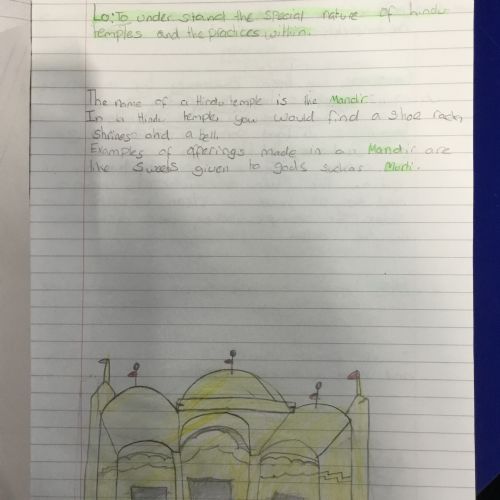 Lo: To under stand the special nature of hindu
temples and the practices within.
The name of a Hindu temple is the Mandir
In a Hindu temple, you would find a shoe rack,
shrines and a bell.
Examples of offerings made in a Mandir are
like sweets given to gods such as Murti.